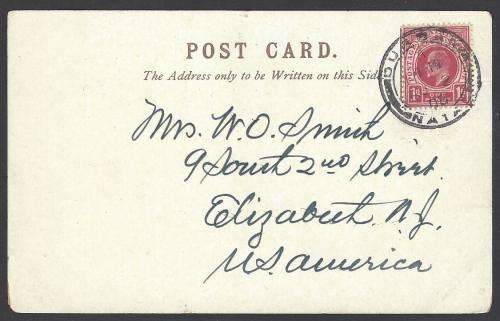 POST CARD.
The Address only to be Written on this Side.
POSTAGE
1d ONE 1d
NATAL
Mrs. W. O. Smith
9 South 2nd Street.
Elizabeth. N.J.
U.S. America